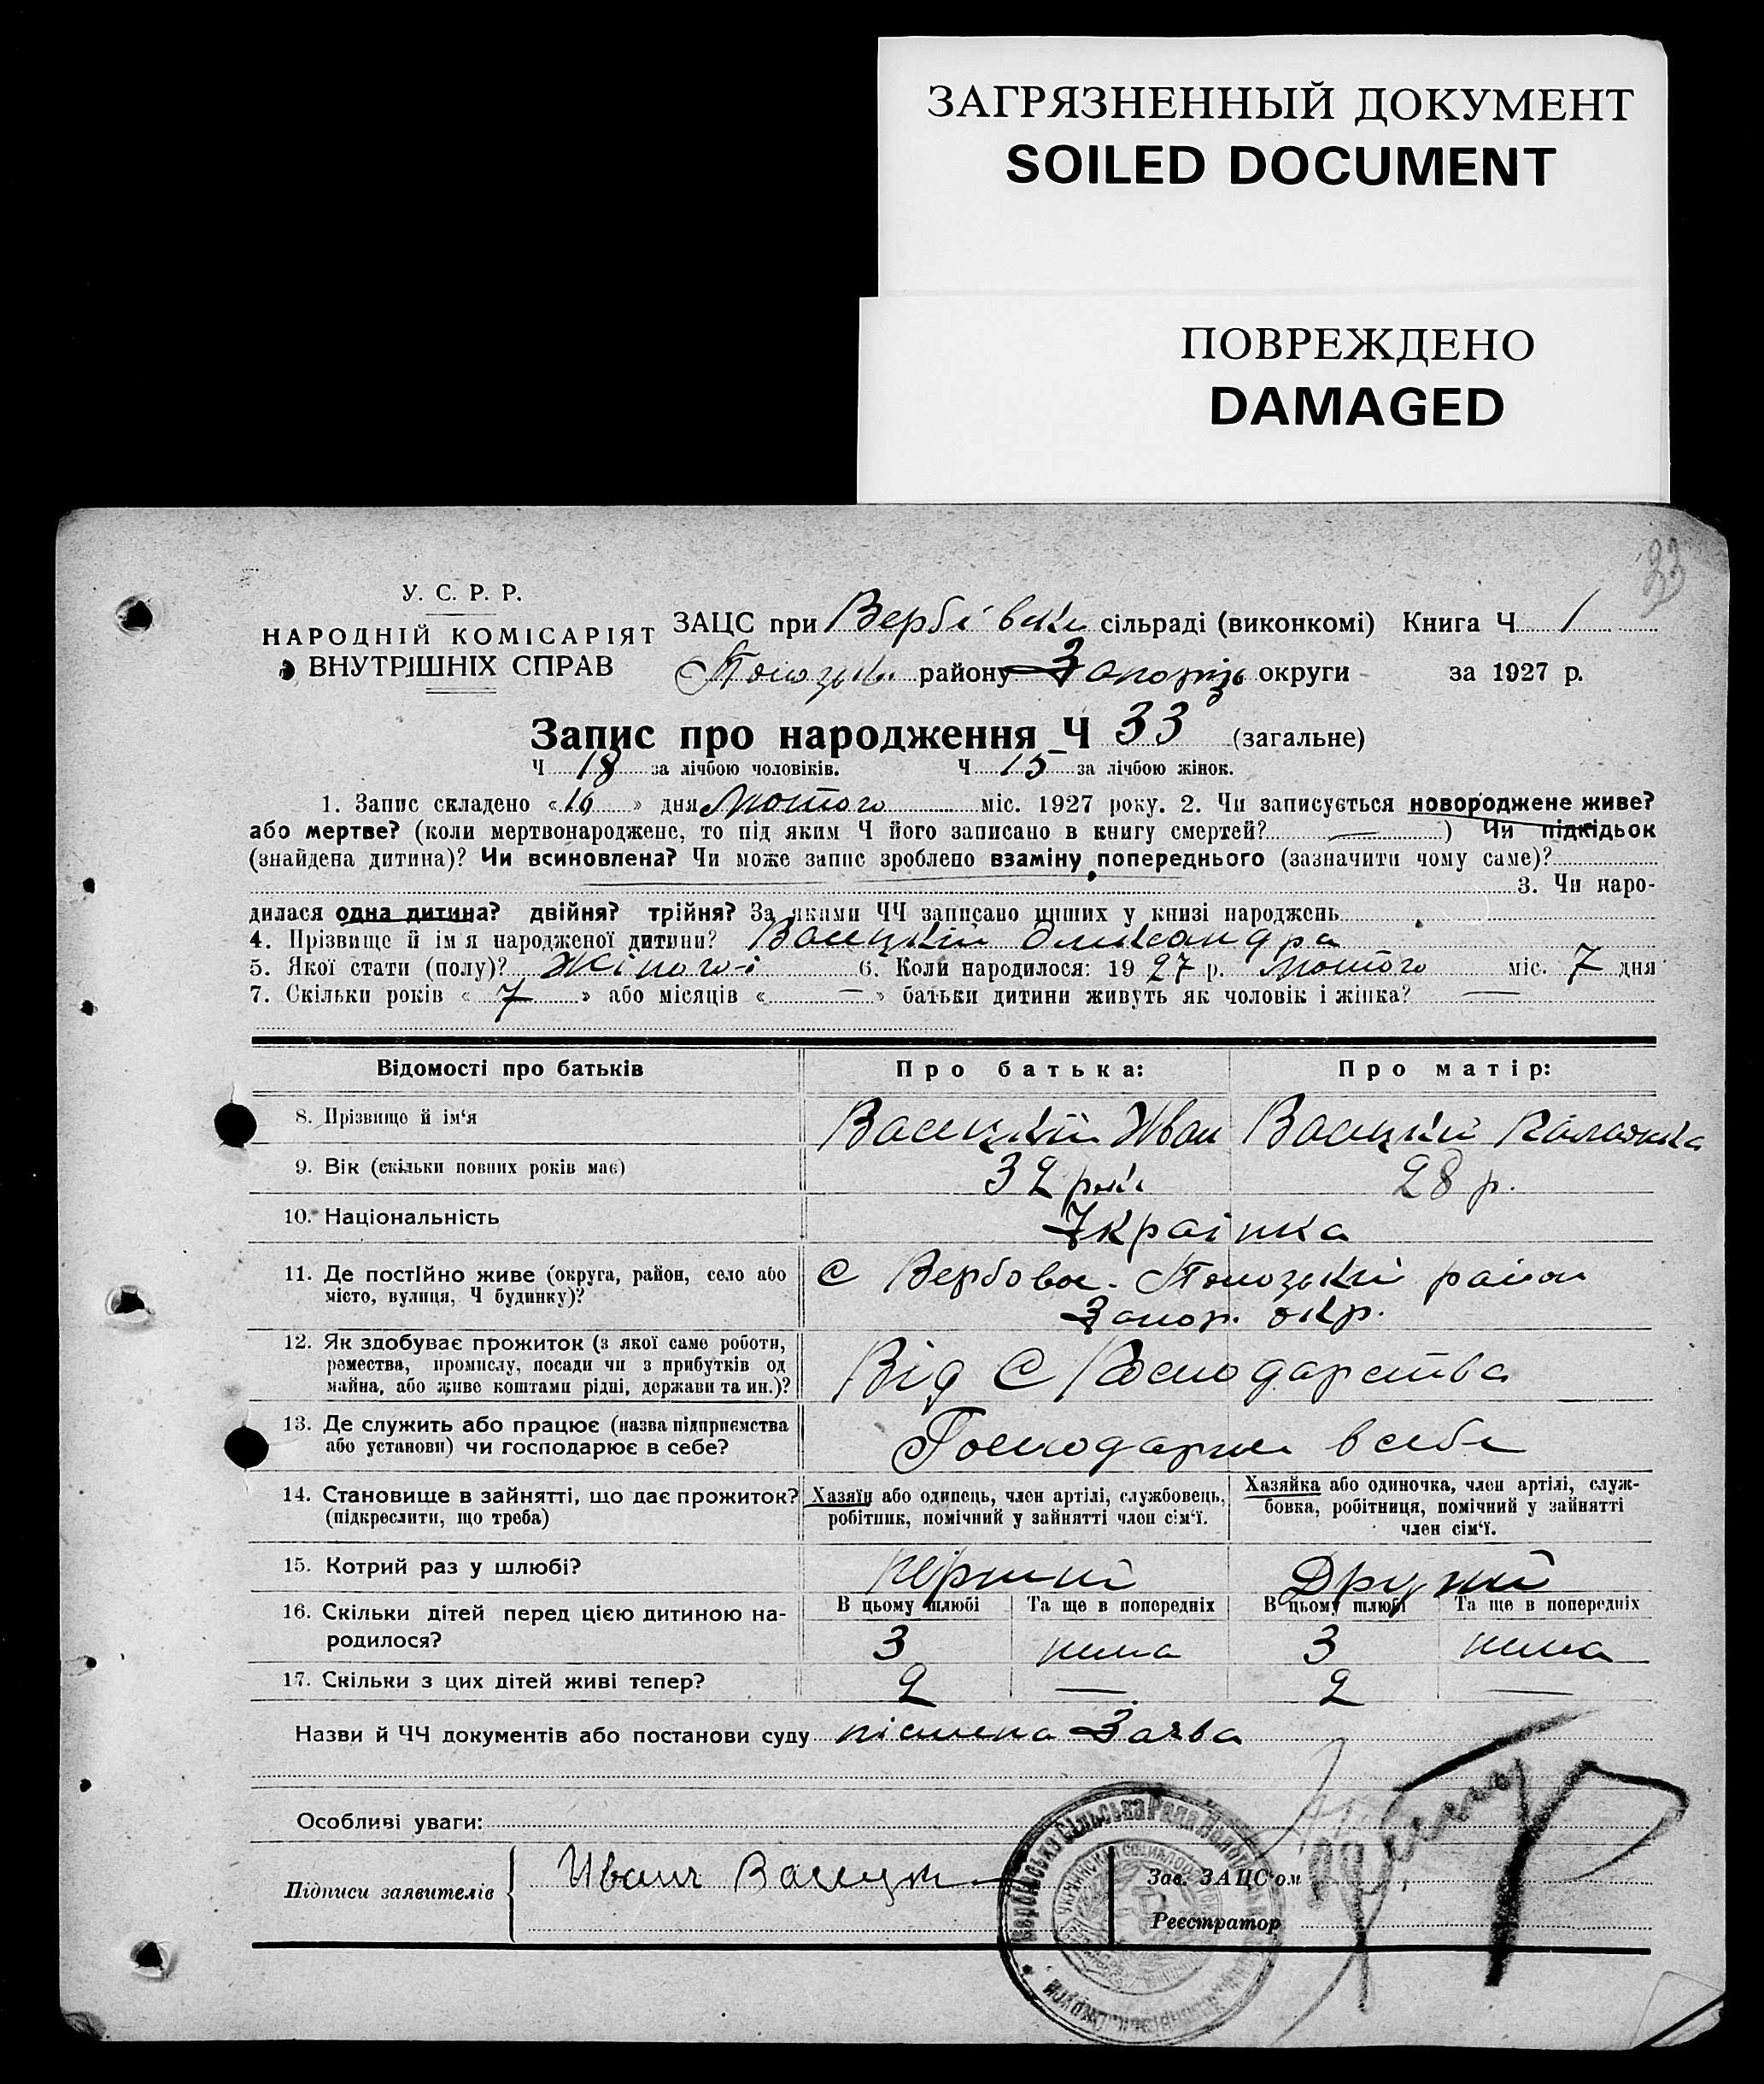 ЗАГРЯЗНЕННЫЙ ДОКУМЕНТ
SOILED DOCUMENT
ПОВРЕЖДЕНО
DAMAGED
33
У. С. Р. Р.
НАРОДНІЙ КОМІСАРІЯТ
ВНУТРІШНІХ СПРАВ
ЗАЦС при Вербівські сільраді (виконкомі) Книга Ч 1
району Запоріз округи за 1927 р.
Запис про народження Ч 33 (загальне)
Ч 18 за лічбою чоловіків. Ч 15 за лічбою жінок.
1. Запис складено «16» дня Лютого міс. 1927 року. 2. Чи записується новороджене живе?
або мертве? (коли мертвонароджене, то під яким Ч його записано в книгу смертей? —) Чи підкідьок
(знайдена дитина)? Чи всиновлена? Чи може запис зроблено взаміну попереднього (зазначити чому саме)?
3. Чи наро-
дилася одна дитина? двійня? трійня? За якими ЧЧ записано инших у книзі народжень
4. Прізвище й ім'я народженої дитини? Васецкій Олександра
5. Якої стати (полу)? Жіного-ї 6. Коли народилося: 1927 р. Лютого міс. 7 дня
7. Скільки років «7» або місяців «—» батьки дитини живуть як чоловік і жінка? —
Відомості про батьків Про батька: Про матір:
8. Прізвище й ім'я Васецкій Иван Васецкій
9. Вік (скільки повних років має) 32 рокі 28 р.
10. Національність Українка
11. Де постійно живе (округа, район, село або С Вербове Пологзькій район
місто, вулиця, Ч будинку)? Запор. окр.
12. Як здобуває прожиток (з якої саме роботи,
ремества, промислу, посади чи з прибутків од Від С Господарства
майна, або живе коштами рідні, держави та ин.)?
13. Де служить або працює (назва підприємства Господарює в себе
або установи) чи господарює в себе?
14. Становище в зайнятті, що дає прожиток? Хазяїн або одинець, член артілі, службовець, Хазяйка або одиночка, член артілі, служ-
(підкреслити, що треба) робітник, помічний у зайнятті член сім'ї. бовка, робітниця, помічний у зайнятті
член сім'ї.
15. Котрий раз у шлюбі? перший Другий
16. Скільки дітей перед цією дитиною на- В цьому шлюбі Та ще в попередніх В цьому шлюбі Та ще в попередніх
родилося? 3 нима 3 нима
17. Скільки з цих дітей живі тепер? 2 — 2 —
Назви й ЧЧ документів або постанови суду пісмена Заява
Особливі уваги:
Підписи заявителів Иванъ Васецки Зав. ЗАЦС'ом
Реєстратор